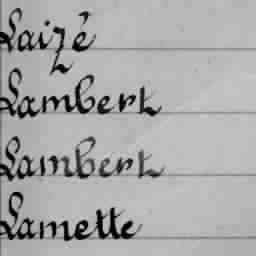 Laizé
Lambert
Lambert
Lamette